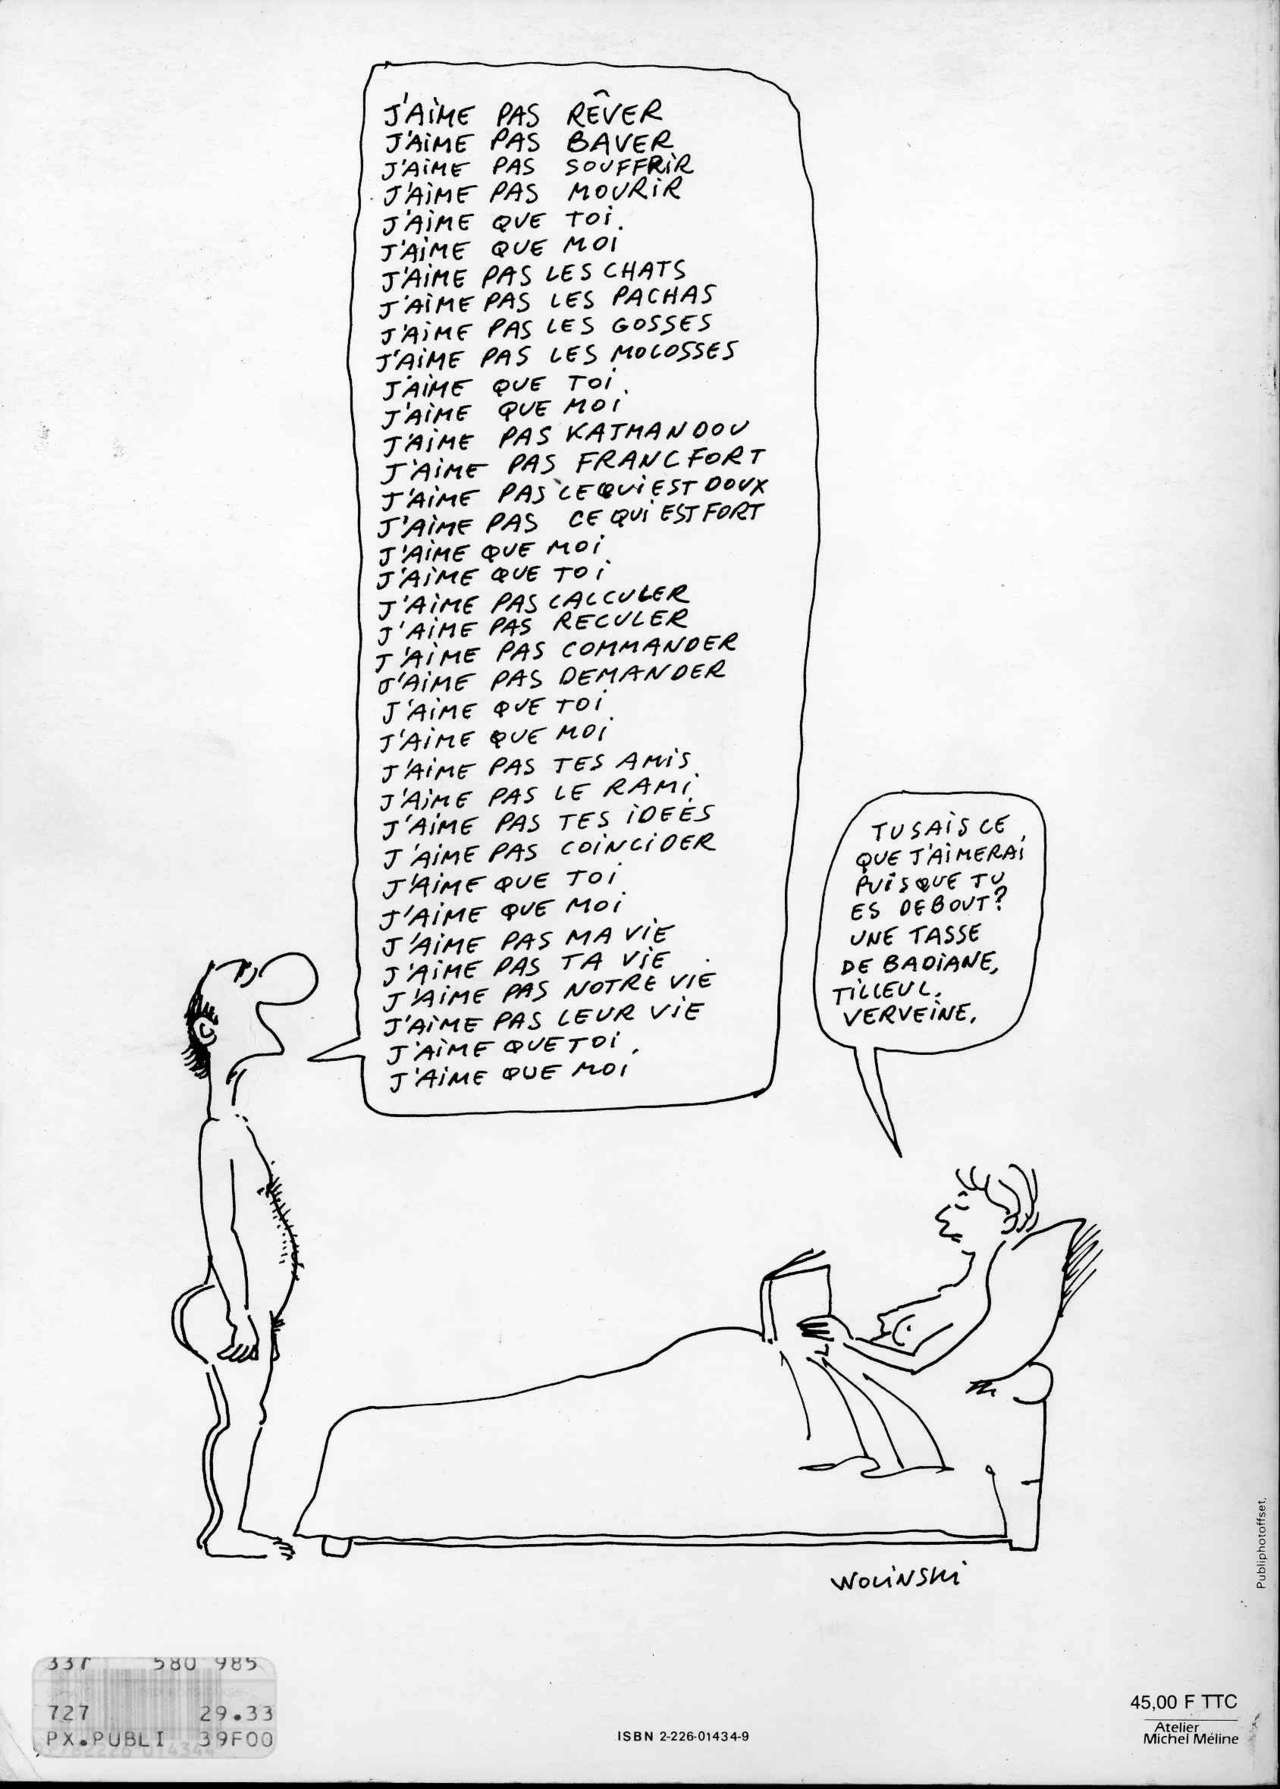 J'AIME PAS RÊVER
J'AIME PAS BAVER
J'AIME PAS SOUFFRIR
J'AIME PAS MOURIR
J'AIME QUE TOI.
J'AIME QUE MOI
J'AIME PAS LES CHATS
J'AIME PAS LES PACHAS
J'AIME PAS LES GOSSES
J'AIME PAS LES MOLOSSES
J'AIME QUE TOI.
J'AIME QUE MOI
J'AIME PAS KATMANDOU
J'AIME PAS FRANCFORT
J'AIME PAS CE QUI EST DOUX
J'AIME PAS CE QUI EST FORT
J'AIME QUE MOI
J'AIME QUE TOI
J'AIME PAS CALCULER
J'AIME PAS RECULER
J'AIME PAS COMMANDER
J'AIME PAS DEMANDER
J'AIME QUE TOI
J'AIME QUE MOI
J'AIME PAS TES AMIS
J'AIME PAS LE RAMI
J'AIME PAS TES IDEÉS
J'AIME PAS COINCIDER
J'AIME QUE TOI
J'AIME QUE MOI
J'AIME PAS MA VIE
J'AIME PAS TA VIE
J'AIME PAS NOTRE VIE
J'AIME PAS LEUR VIE
J'AIME QUE TOI.
J'AIME QUE MOI
TU SAIS CE
QUE J'AIMERAI
PUISQUE TU
ES DEBOUT?
UNE TASSE
DE BADIANE,
TILLEUL,
VERVEINE.
WOLINSKI
Publiphotoffset.
580 985
727 29.33
PX.PUBLI 39F00
ISBN 2-226-01434-9
45,00 F TTC
Atelier
Michel Méline